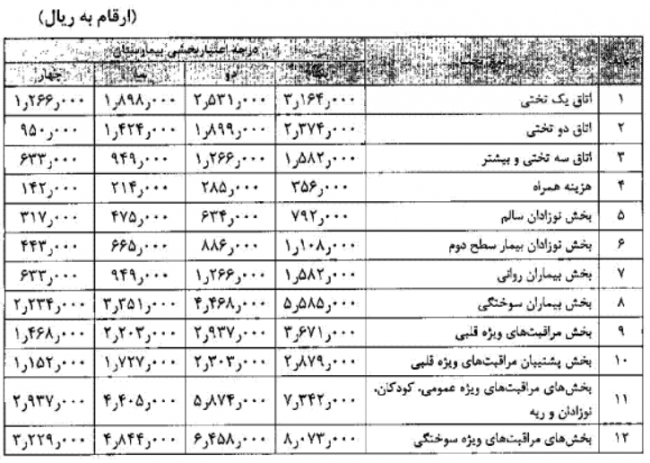 (ارقام به ریال)
درجه اعتباربخشی بیمارستان
یک دو سه چهار
۱ اتاق یک تختی ۳٫۱۶۴٫۰۰۰ ۲٫۵۳۱٫۰۰۰ ۱٫۸۹۸٫۰۰۰ ۱٫۲۶۶٫۰۰۰
۲ اتاق دو تختی ۲٫۳۷۴٫۰۰۰ ۱٫۸۹۹٫۰۰۰ ۱٫۴۲۴٫۰۰۰ ۹۵۰٫۰۰۰
۳ اتاق سه تختی و بیشتر ۱٫۵۸۲٫۰۰۰ ۱٫۲۶۶٫۰۰۰ ۹۴۹٫۰۰۰ ۶۳۳٫۰۰۰
۴ هزینه همراه ۳۵۶٫۰۰۰ ۲۸۵٫۰۰۰ ۲۱۴٫۰۰۰ ۱۴۲٫۰۰۰
۵ بخش نوزادان سالم ۷۹۲٫۰۰۰ ۶۳۴٫۰۰۰ ۴۷۵٫۰۰۰ ۳۱۷٫۰۰۰
۶ بخش نوزادان بیمار سطح دوم ۱٫۱۰۸٫۰۰۰ ۸۸۶٫۰۰۰ ۶۶۵٫۰۰۰ ۴۴۳٫۰۰۰
۷ بخش بیماران روانی ۱٫۵۸۲٫۰۰۰ ۱٫۲۶۶٫۰۰۰ ۹۴۹٫۰۰۰ ۶۳۳٫۰۰۰
۸ بخش بیماران سوختگی ۵٫۵۸۵٫۰۰۰ ۴٫۴۶۸٫۰۰۰ ۳٫۳۵۱٫۰۰۰ ۲٫۲۳۴٫۰۰۰
۹ بخش مراقبت‌های ویژه قلبی ۳٫۶۷۱٫۰۰۰ ۲٫۹۳۷٫۰۰۰ ۲٫۲۰۳٫۰۰۰ ۱٫۴۶۸٫۰۰۰
۱۰ بخش پشتیبان مراقبت‌های ویژه قلبی ۲٫۸۷۹٫۰۰۰ ۲٫۳۰۳٫۰۰۰ ۱٫۷۲۷٫۰۰۰ ۱٫۱۵۲٫۰۰۰
۱۱ بخش‌های مراقبت‌های ویژه عمومی، کودکان، ۷٫۳۴۲٫۰۰۰ ۵٫۸۷۴٫۰۰۰ ۴٫۴۰۵٫۰۰۰ ۲٫۹۳۷٫۰۰۰
نوزادان و ریه
۱۲ بخش‌های مراقبت‌های ویژه سوختگی ۸٫۰۷۳٫۰۰۰ ۶٫۴۵۸٫۰۰۰ ۴٫۸۴۴٫۰۰۰ ۳٫۲۲۹٫۰۰۰